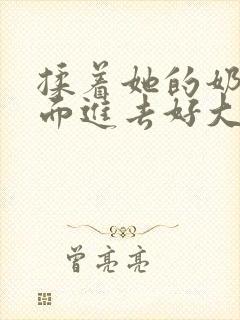 揉着她的奶
而进去好大
曾亮亮